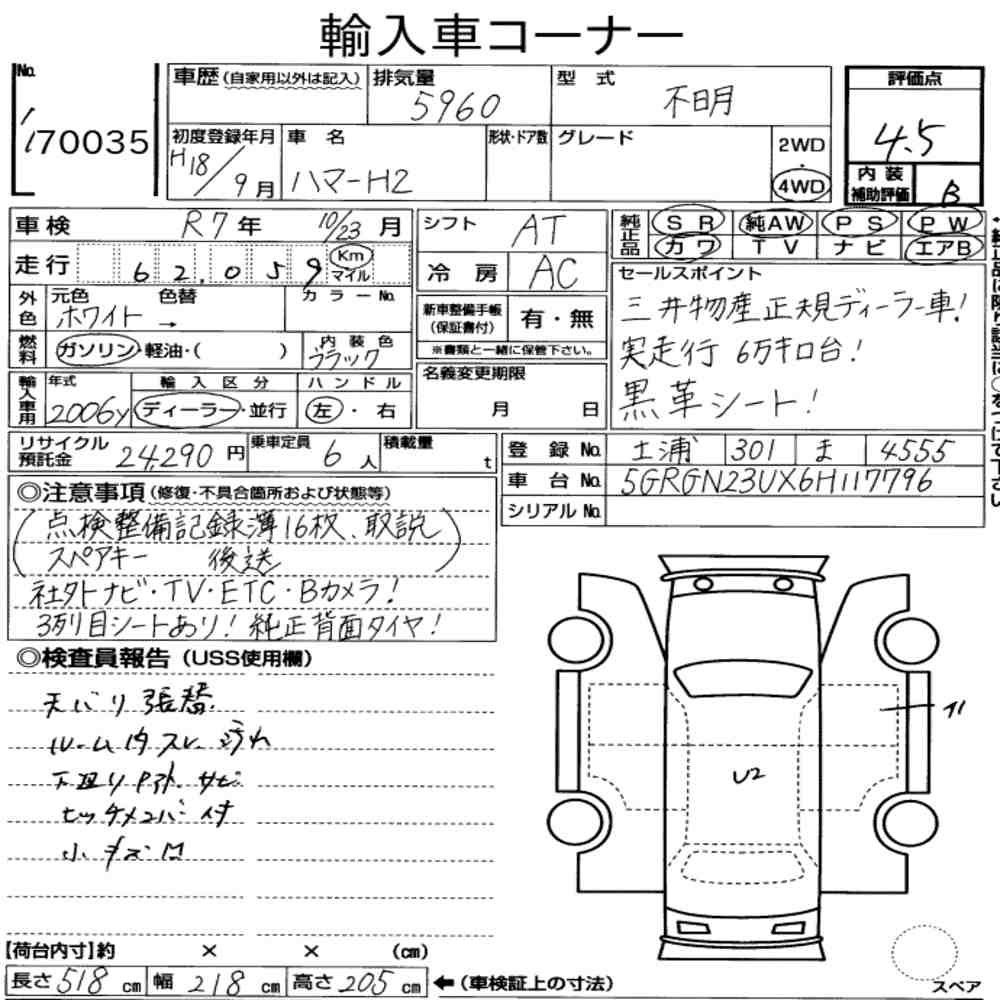 輸入車コーナー
No.
170035
車歴(自家用以外は記入)
排気量
5960
型式
不明
評価点
4.5
内装補助評価
B
初度登録年月
H18/9月
車名
ハマーH2
形状・ドア数
グレード
2WD・4WD
車検
R7年 10/23月
走行
62,059
Km
マイル
シフト
AT
冷房
AC
純正品
SR 純AW PS PW
カワ TV ナビ エアB
外色
元色 色替
ホワイト →
カラーNo.
燃料
ガソリン・軽油・( )
内装色
ブラック
新車整備手帳(保証書付)
有・無
※書類と一緒に保管下さい。
セールスポイント
三井物産正規ディーラー車!
実走行 6万キロ台!
黒革シート!
輸入車用
年式
2006y
輸入区分
ディーラー・並行
ハンドル
左・右
名義変更期限
月 日
リサイクル預託金
24,290円
乗車定員
6人
積載量
t
登録No.
土浦 301 ま 4555
車台No.
5GRGN23UX6H117796
シリアルNo.
◎注意事項(修復・不具合箇所および状態等)
(点検整備記録簿16枚、取説
スペアキー 後送)
社外ナビ・TV・ETC・Bカメラ!
3列目シートあり!純正背面タイヤ!
◎検査員報告(USS使用欄)
天バリ張替
ルーム内スレ 汚れ
下廻り サビ
ヒッチメンバー付
小キズ
A1
U2
【荷台内寸】約 × × (cm)
長さ518cm 幅218cm 高さ205cm ←(車検証上の寸法)
スペア